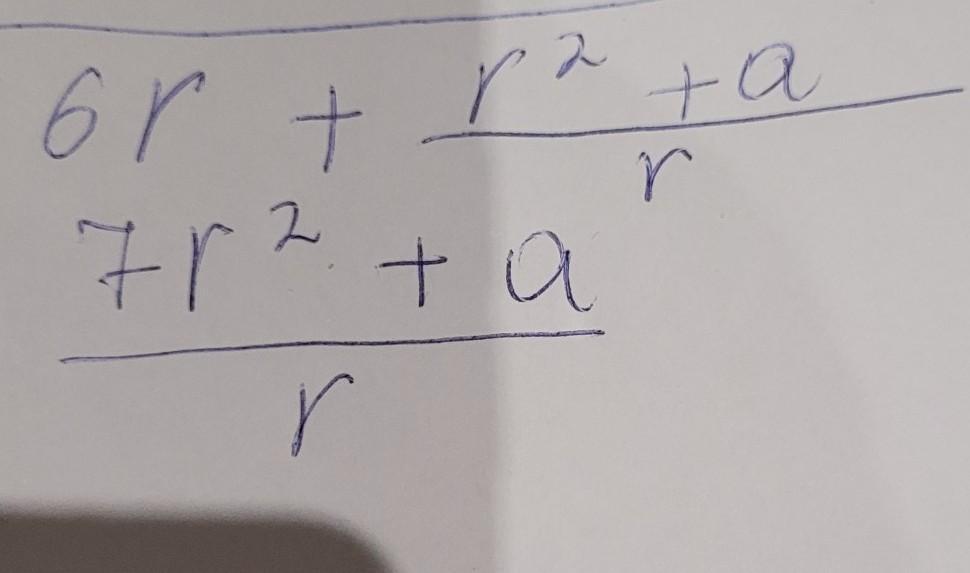 6r + r² + a
r
7r² + a
r